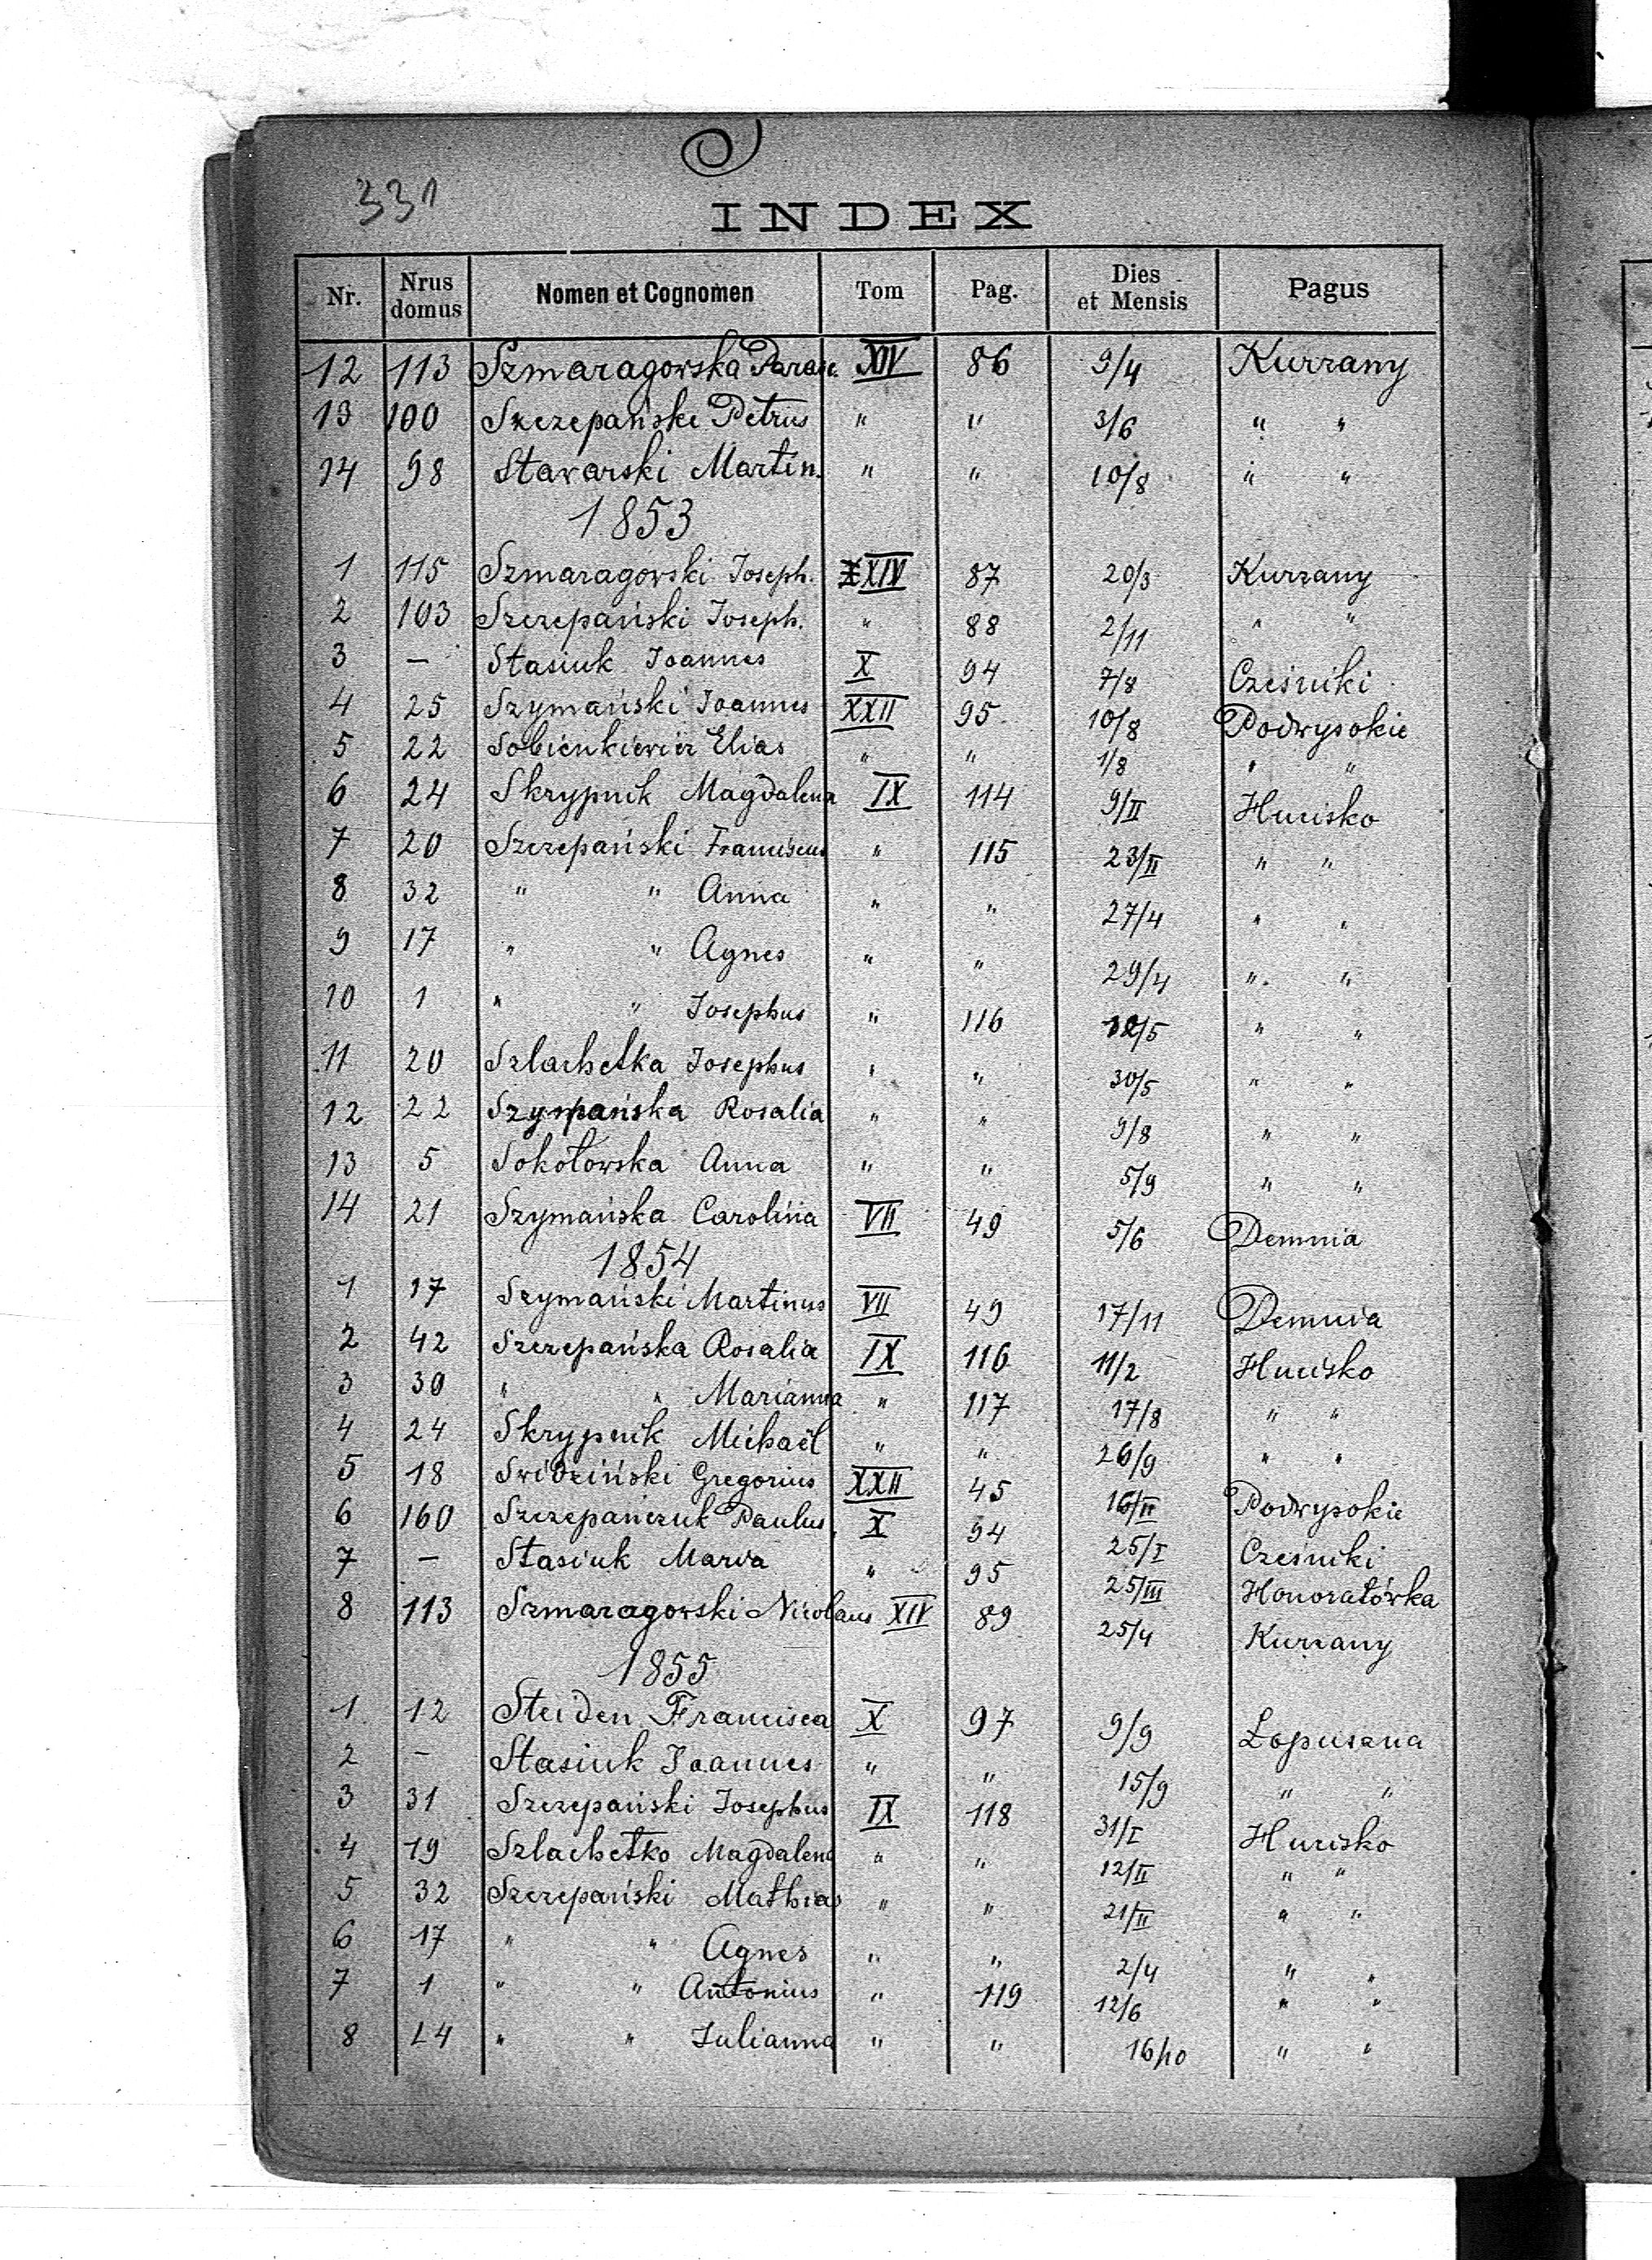 331
INDEX
Nr. Nrus domus Nomen et Cognomen Tom Pag. Dies et Mensis Pagus
12 113 Szmaragowska Parasc. XIV 86 9/4 Kurzany
13 100 Szczepański Petrus " " 3/6 " "
14 98 Stavarski Martin. " " 10/8 " "
1853
1 115 Szmaragowski Joseph. XIV 87 20/3 Kurzany
2 103 Szczepański Joseph. " 88 2/11 " "
3 — Stasiuk Joannes X 94 7/8 Cześniki
4 25 Szymański Joannes XXII 95 10/8 Podwysokie
5 22 Sobienkiewicz Elias " " 1/8 " "
6 24 Skrypnik Magdalena IX 114 9/II Hucisko
7 20 Szczepański Franciscus " 115 23/II " "
8 32 " " Anna " " 27/4 " "
9 17 " " Agnes " " 29/4 " "
10 1 " " Josephus " 116 12/5 " "
11 20 Szlachetka Josephus " " 30/5 " "
12 22 Szymańska Rosalia " " 9/8 " "
13 5 Sokołowska Anna " " 5/9 " "
14 21 Szymańska Carolina VII 49 5/6 Demnia
1854
1 17 Szymański Martinus VII 49 17/11 Demnia
2 42 Szczepańska Rosalia IX 116 11/2 Hucisko
3 30 " " Marianna " 117 17/8 " "
4 24 Skrypnik Michaël " " 26/9 " "
5 18 Swidziński Gregorius XXII 45 16/II Podwysokie
6 160 Szczepańczuk Paulus X 94 25/I Cześniki
7 — Stasiuk Maria " 95 25/III Honoratówka
8 113 Szmaragowski Nicolaus XIV 89 25/4 Kurzany
1855
1 12 Steiden Francisca X 97 9/9 Łopuszna
2 — Stasiuk Joannes " " 15/9 " "
3 31 Szczepański Josephus IX 118 31/I Hucisko
4 19 Szlachetko Magdalena " " 12/II " "
5 32 Szczepański Mathias " " 21/II " "
6 17 " " Agnes " " 2/4 " "
7 1 " " Antonius " 119 12/6 " "
8 24 " " Julianna " " 16/10 " "